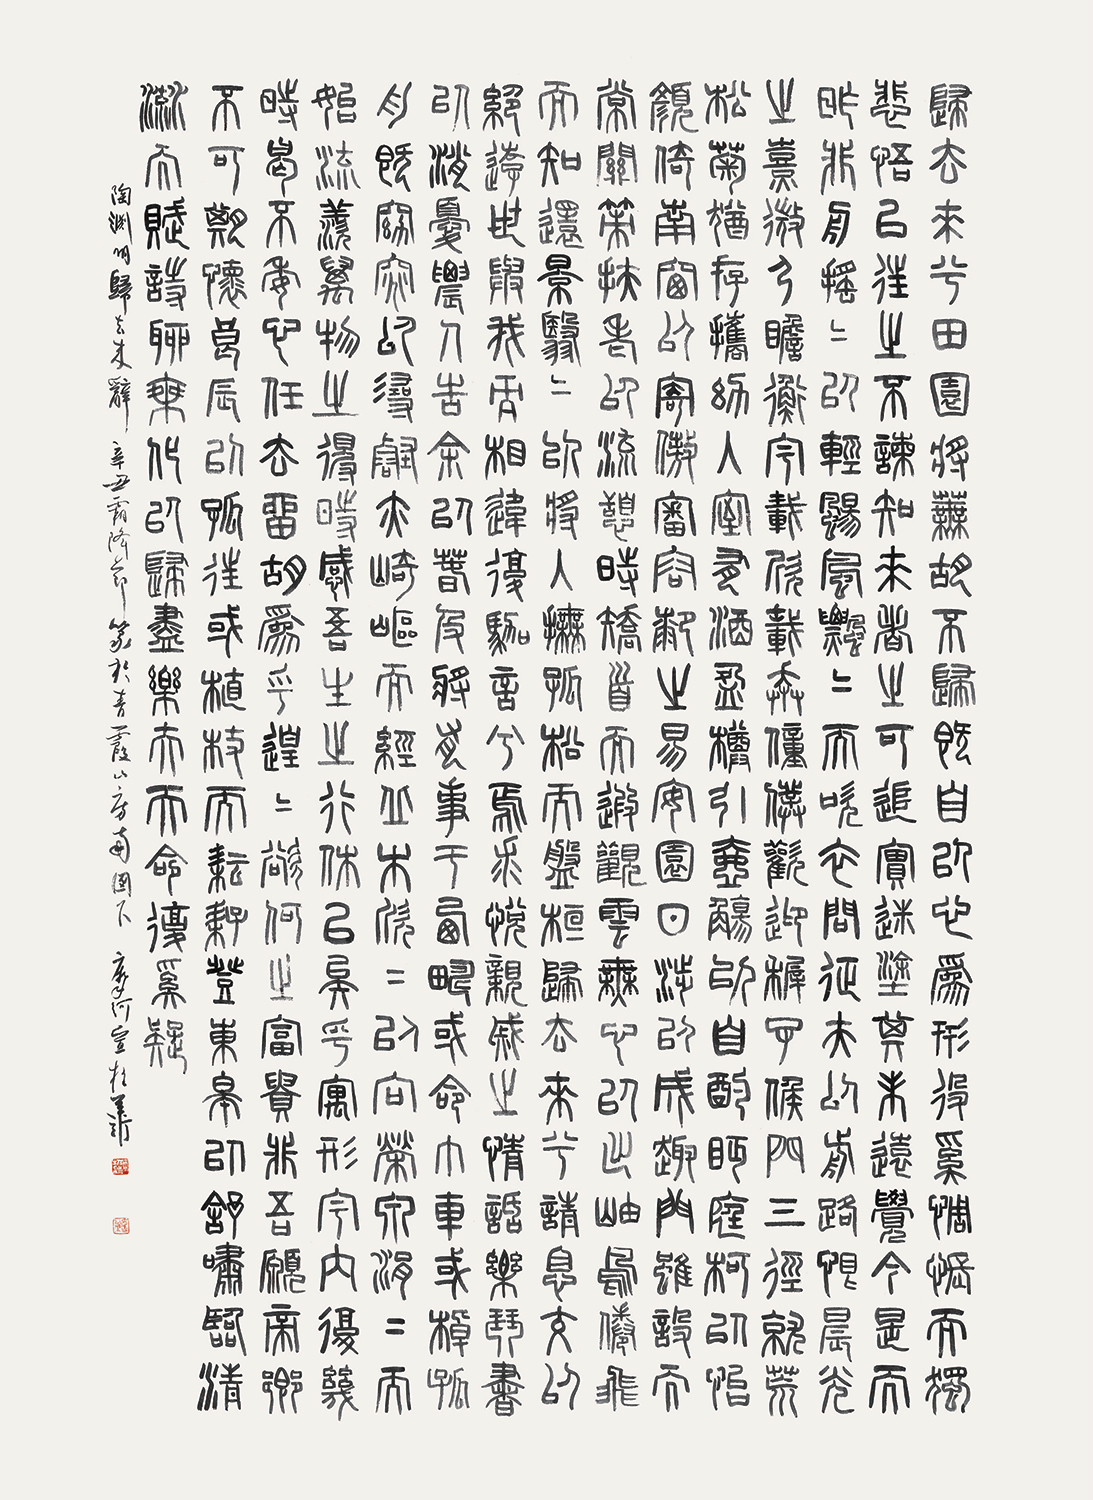 歸去來兮田園將蕪胡不歸既自以心爲形役奚惆悵而獨
悲悟已往之不諫知來者之可追實迷塗其未遠覺今是而
昨非舟搖〻以輕颺風飄〻而吹衣問征夫以前路恨晨光
之熹微乃瞻衡宇載欣載奔僮僕歡迎稚子候門三徑就荒
松菊猶存攜幼入室有酒盈樽引壺觴以自酌眄庭柯以怡
顏倚南窗以寄傲審容膝之易安園日涉以成趣門雖設而
常關策扶老以流憩時矯首而遐觀雲無心以出岫鳥倦飛
而知還景翳〻以將入撫孤松而盤桓歸去來兮請息交以
絕遊世與我而相違復駕言兮焉求悅親戚之情話樂琴書
以消憂農人告余以春及將有事于西疇或命巾車或棹孤
舟既窈窕以尋壑亦崎嶇而經丘木欣〻以向榮泉涓〻而
始流羨萬物之得時感吾生之行休已矣乎寓形宇內復幾
時曷不委心任去留胡爲乎遑〻欲何之富貴非吾願帝鄉
不可期懷良辰以孤往或植杖而耘耔登東皋以舒嘯臨清
流而賦詩聊乘化以歸盡樂夫天命復奚疑
陶淵明歸去來辭 辛丑霜降節篆於青霞山房南窗下